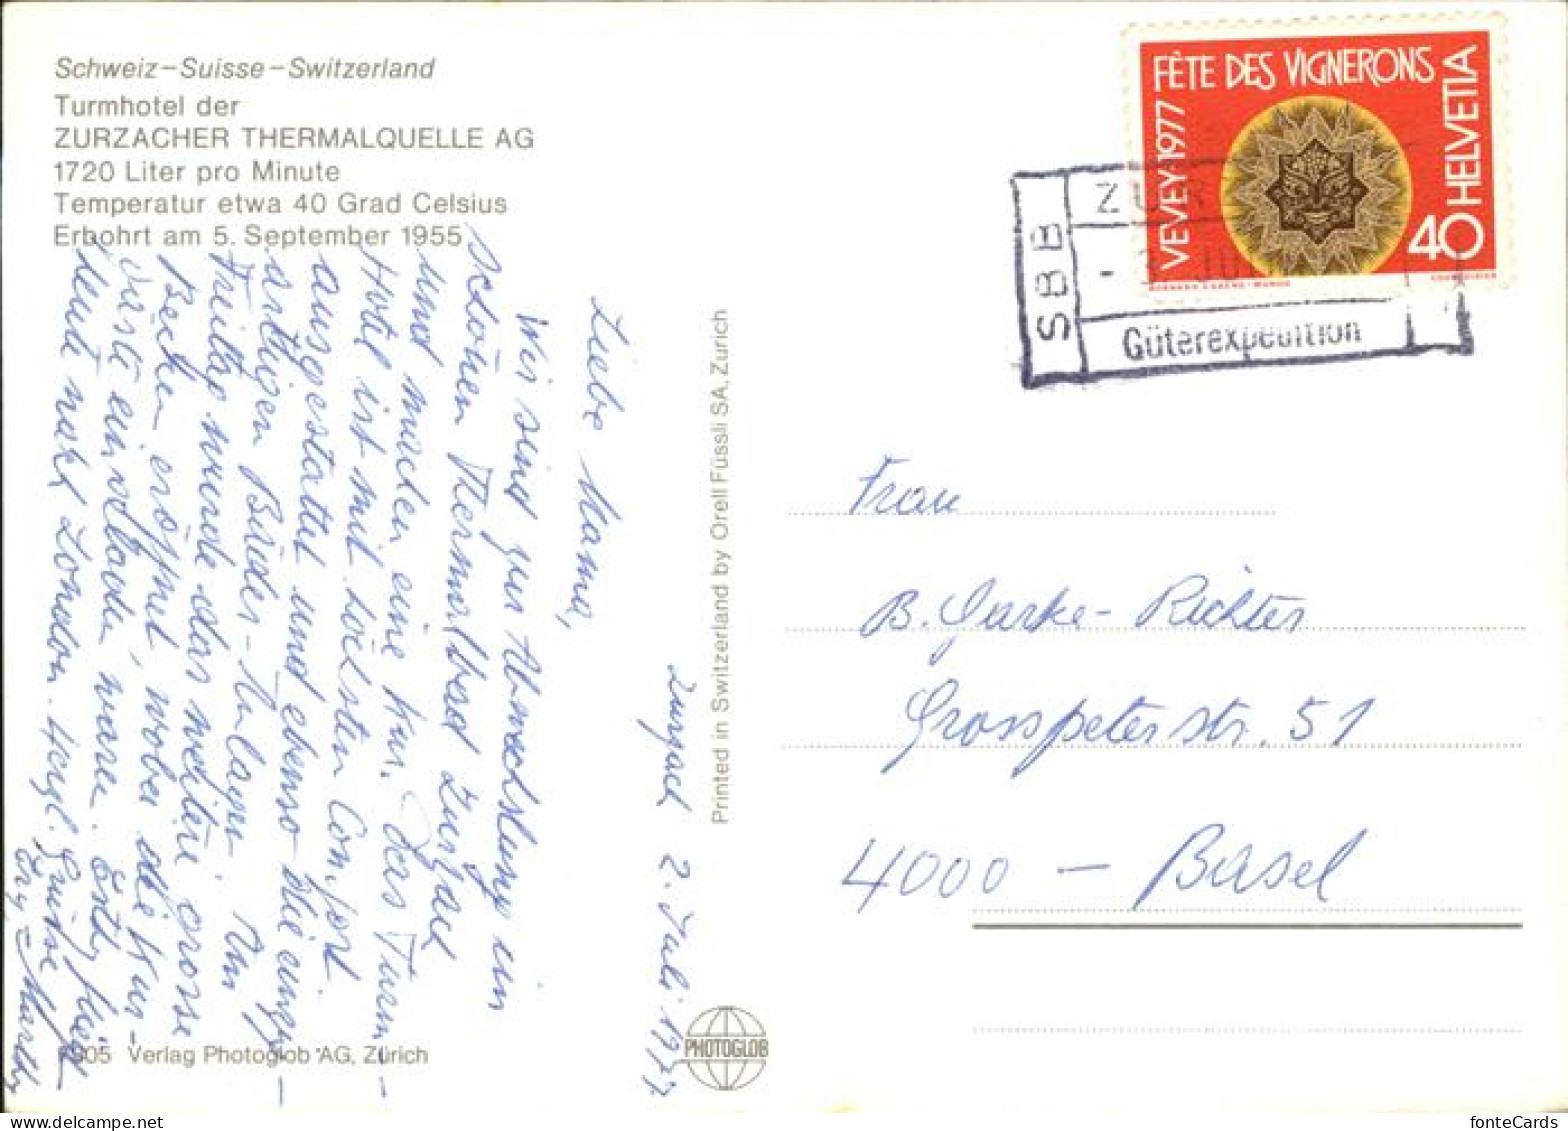 Schweiz–Suisse–Switzerland
Turmhotel der
ZURZACHER THERMALQUELLE AG
1720 Liter pro Minute
Temperatur etwa 40 Grad Celsius
Erbohrt am 5. September 1955
Zurzach 2. Juli 1977
Liebe Mama,
Wir sind zur Abwechslung im
schönen Thermalbad Zurzach
und machen eine Kur. Das Turm-
Hotel ist mit höchstem Comfort
ausgestattet und ebenso die einzig-
artigen Bäder-Anlagen. Am
Freitag wurde das weitere grosse
Becken eröffnet, wobei die Kur-
gäste eingeladen waren. Esthy fliegt
heute nach London. Herzl. Grüsse
Martky
7805 Verlag Photoglob AG, Zürich
Printed in Switzerland by Orell Füssli SA, Zurich
PHOTOGLOB
FÊTE DES VIGNERONS
VEVEY·1977
HELVETIA
40
COURVOISIER
SBB
ZUR
JUL
Güterexpedition
Frau
B. Gurke-Richter
Grosspeterstr. 51
4000 – Basel
fonteCards